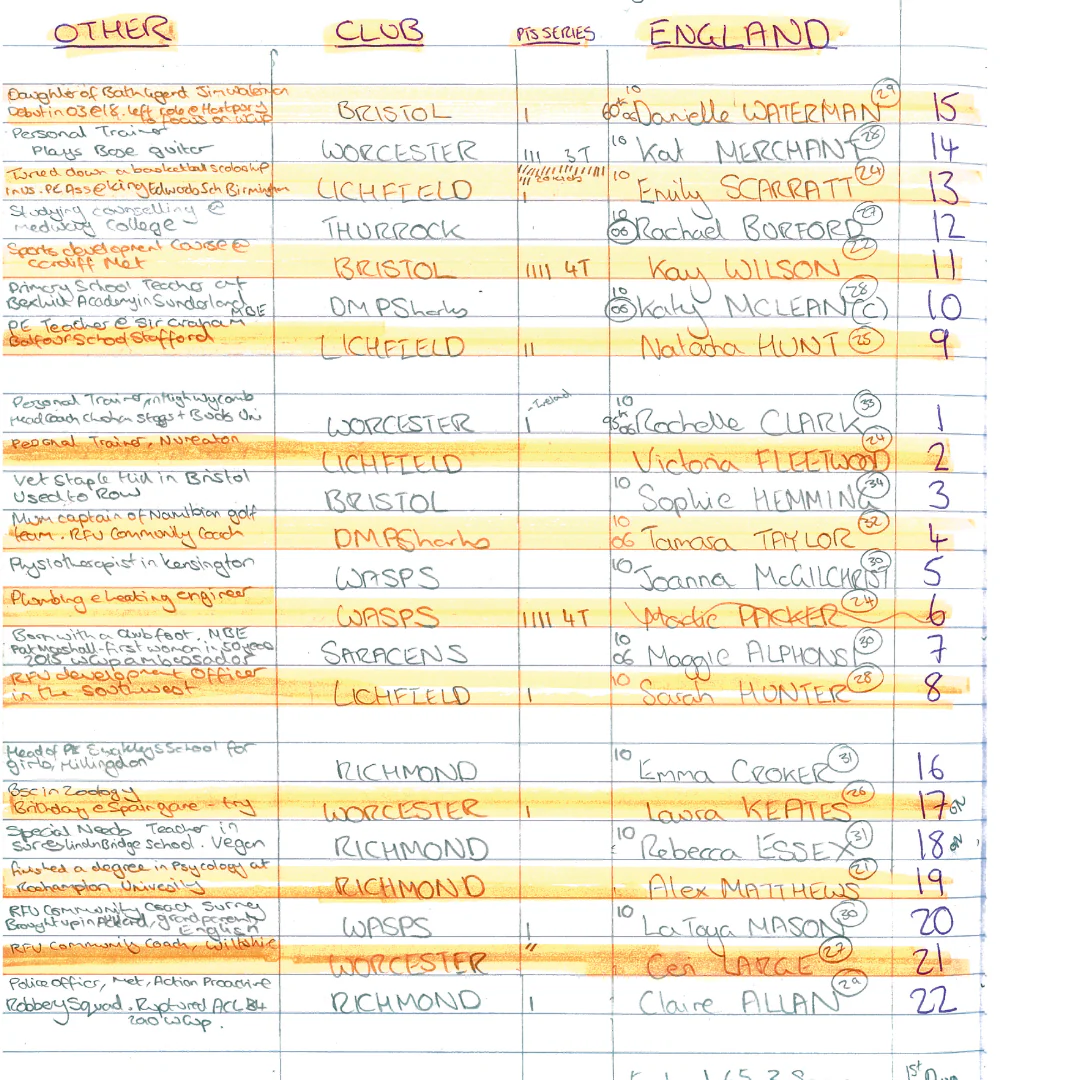 OTHER CLUB PTS SERIES ENGLAND
Daughter of Bath legend Jim Waterman
Debut in 03 @ 18. left role @ Hartpury
to focus on WCup
BRISTOL I 60th 10 06 Danielle WATERMAN 29 15
Personal Trainer
Plays Base guitar
WORCESTER III 3T 10 Kat MERCHANT 28 14
Turned down a basketball scolship
in US. PE Ass @ King Edwards Sch Birmingham
LICHFIELD 20 kicks I 10 Emily SCARRATT 24 13
Studying counselling @
Medway College
THURROCK 10 06 Rachael BURFORD 27 12
Sports development Course @
Cardiff Met
BRISTOL IIII 4T Kay WILSON 22 11
Primary School Teacher at
Bexhill Academy in Sunderland
MBE
DMPSharks 10 06 Katy MCLEAN (C) 28 10
PE Teacher @ Sir Graham
Balfour School Stafford
LICHFIELD II Natasha HUNT 25 9
Personal Trainer, in High Wycomb
Head Coach Chesham Stags + Bucks Uni
WORCESTER I - Ireland 10 95th 06 Rochelle CLARK 33 1
Personal Trainer, Nuneaton
LICHFIELD Victoria FLEETWOOD 24 2
Vet Staple Hill in Bristol
Used to Row
BRISTOL 10 Sophie HEMMING 34 3
Mum captain of Namibian golf
team. RFU Community Coach
DMPSharks 10 06 Tamara TAYLOR 32 4
Physiotherapist in Kensington
WASPS 10 Joanna McGILCHRIST 30 5
Plumbing & heating engineer
WASPS IIII 4T PACKER 24 6
Born with a club foot. MBE
Pat Marshall - first women in 50 years
2015 WCup ambassador
SARACENS 10 06 Maggie ALPHONSI 30 7
RFU development Officer
in the southwest
LICHFIELD I 10 Sarah HUNTER 28 8
Head of PE School for
girls, Hillingdon
RICHMOND 10 Emma CROKER 31 16
Bsc in Zoology
Birthday @ Spain game - try
WORCESTER I Laura KEATES 26 17 ON
Special Needs Teacher in
Linden Bridge School. Vegan
RICHMOND 10 Rebecca ESSEX 31 18 ON
finished a degree in Psycology at
Roehampton University
RICHMOND Alex MATTHEWS 21 19
RFU Community Coach Surrey
Brought up in, grandparents
English
WASPS I 10 LaToya MASON 30 20
RFU Community Coach, Wiltshire
WORCESTER II Ceri LARGE 27 21
Police officer, Met, Action Proactive
Robbey Squad. Ruptured ACL B4
2010 WCup.
RICHMOND I Claire ALLAN 29 22
1st